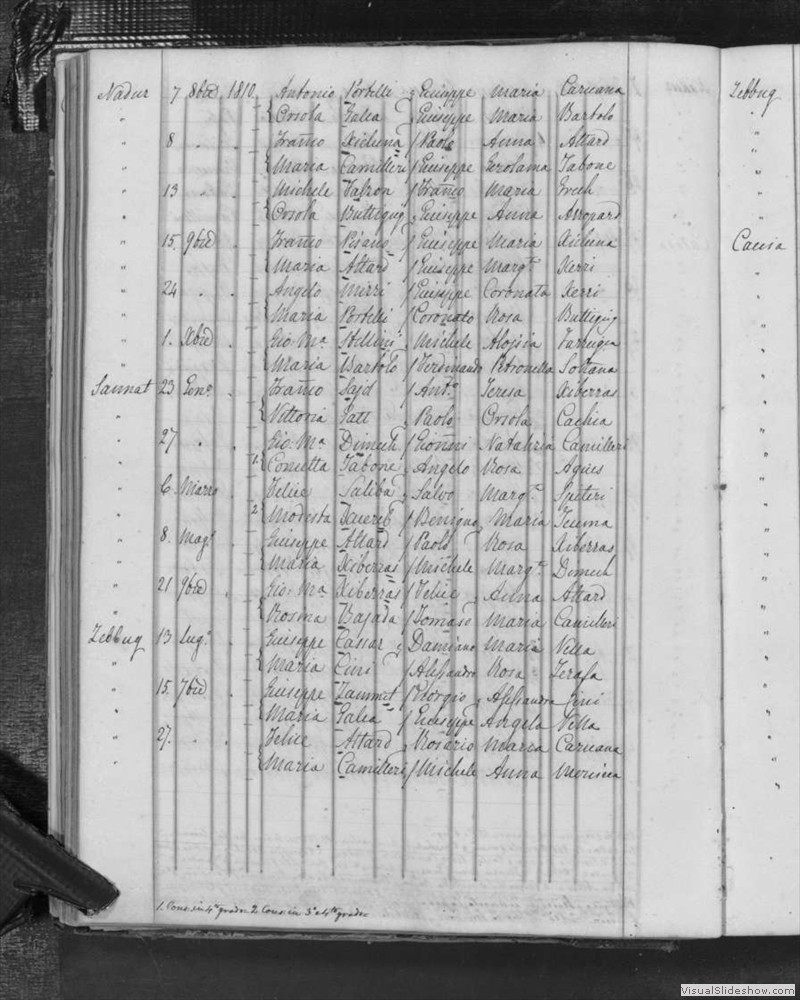 Nadur 7 8bre 1810. Antonio Portelli f Giuseppe Maria Caruana
" Orsola Galea f Giuseppe Maria Bartolo
" 8 . . Franco Xicluna f Paolo Anna Attard
" Maria Camilleri f Giuseppe Gerolama Tabone
" 13 . . Michele f Franco Maria Grech
" Orsola Buttigieg f Giuseppe Anna Assopard
" 15. 9bre . Franco Pisano f Giuseppe Maria Xicluna
" Maria Attard f Giuseppe Margta Xerri
" 24 . . Angelo Mizzi f Giuseppe Coronata Xerri
" Maria Portelli f Coronato Rosa Buttigieg
" 1. Xbre . Gio: Ma Stellini f Michele Aloisia Farrugia
" Maria Bartolo f Ferdinando Petronella Soltana
Sannat 23 Geno . Franco Sajd f Anto Teresa Xiberras
" Vittoria Gatt f Paolo Orsola Cachia
" 27 . . Gio: Ma Dimech f Gionni Natalizia Camilleri
" 1. Conietta Tabone f Angelo Rosa Agius
" 6 Marzo . Felice Saliba f Salvo Margta Spiteri
" 2. Modesta Xuereb f Benigno Maria Teuma
" 8. Mago . Giuseppe Attard f Paolo Rosa Xiberras
" Maria Xiberras f Michele Margta Dimech
" 21 9bre . Gio: Ma Xiberras f Felice Anna Attard
" Rosina Bajada f Tomaso Maria Camilleri
Zebbug 13 Lugo . Giuseppe Cassar f Damiano Maria Vella
" Maria Cini f Alessandro Rosa Zerafa
" 15. 7bre . Giuseppe Zammit f Giorgio Alessandra Cini
" Maria Galea f Giuseppe Angela Vella
" 27. . . Felice Attard f Rosario Maria Caruana
" Maria Camilleri f Michele Anna
1. Cons: in 4to grado 2. Cons: in 3o e 4to grado
Zebbug
"
"
"
"
"
Caccia
"
"
"
"
VisualSlideshow.com